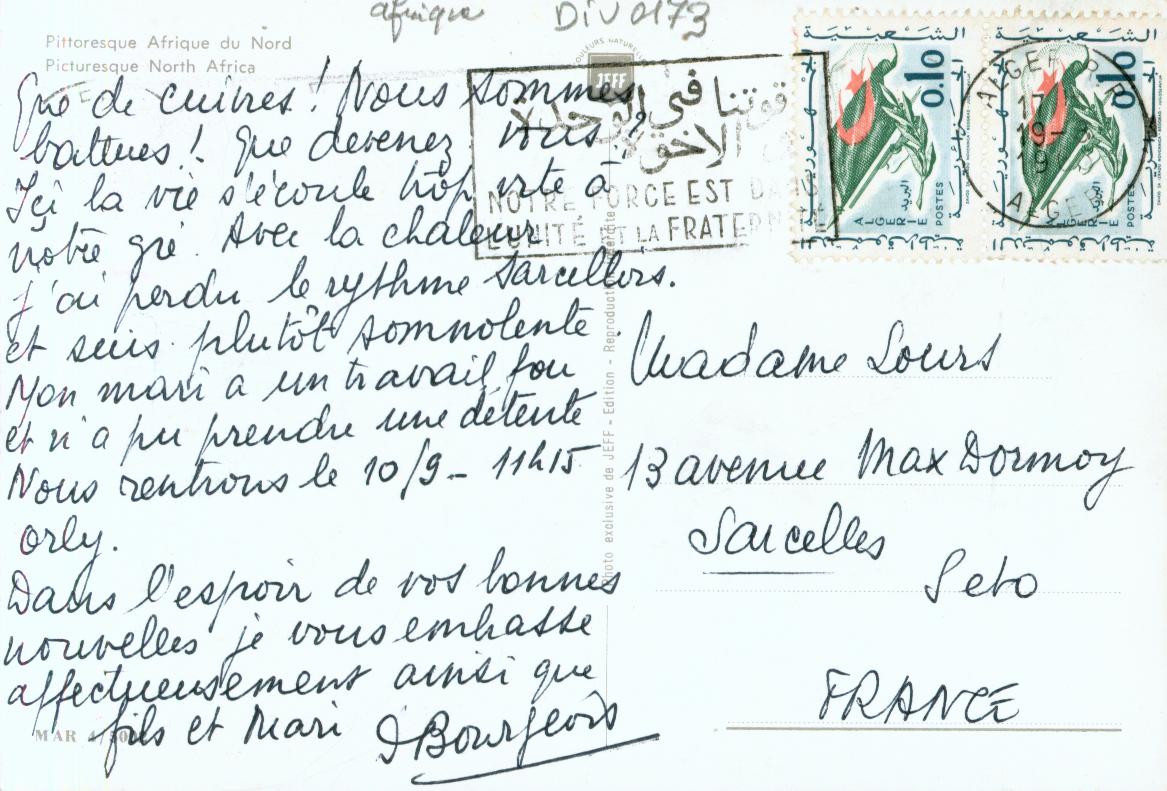 afrique DIV 0173
Pittoresque Afrique du Nord
Picturesque North Africa
Que de cuivres ! Nous sommes
battues ! Que devenez vous ?
Içi la vie s'écoule trop vite à
notre gré. Avec la chaleur
j'ai perdu le rythme Sarcellois.
et suis plutôt somnolente.
Mon mari a un travail fou
et n'a pu prendre une détente
Nous rentrons le 10/9 - 11h15
orly.
Dans l'espoir de vos bonnes
nouvelles je vous embrasse
affectueusement ainsi que
fils et Mari
D Bourgeois
MAR
COULEURS NATURELLES
JEFF
Photo exclusive de JEFF - Edition - Reproduction
قوتنا في الوحدة
الاخوة
NOTRE FORCE EST DANS
L'UNITÉ ET LA FRATERNITÉ
0.10
البريد
ALGERIE
POSTES
0.10
ALGERIE
POSTES
ALGER R.P
17
19-
19
ALGER
Madame Lours
13 avenue Max Dormoy
Sarcelles
Seto
FRANCE